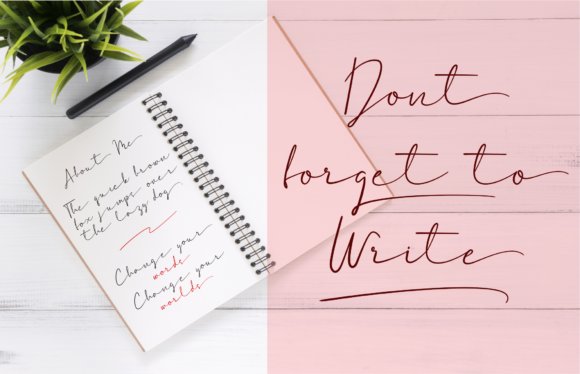 About Me
The quick brown
fox jumps over
the lazy dog
Change your
words
Change your
worlds
Dont
forget to
Write